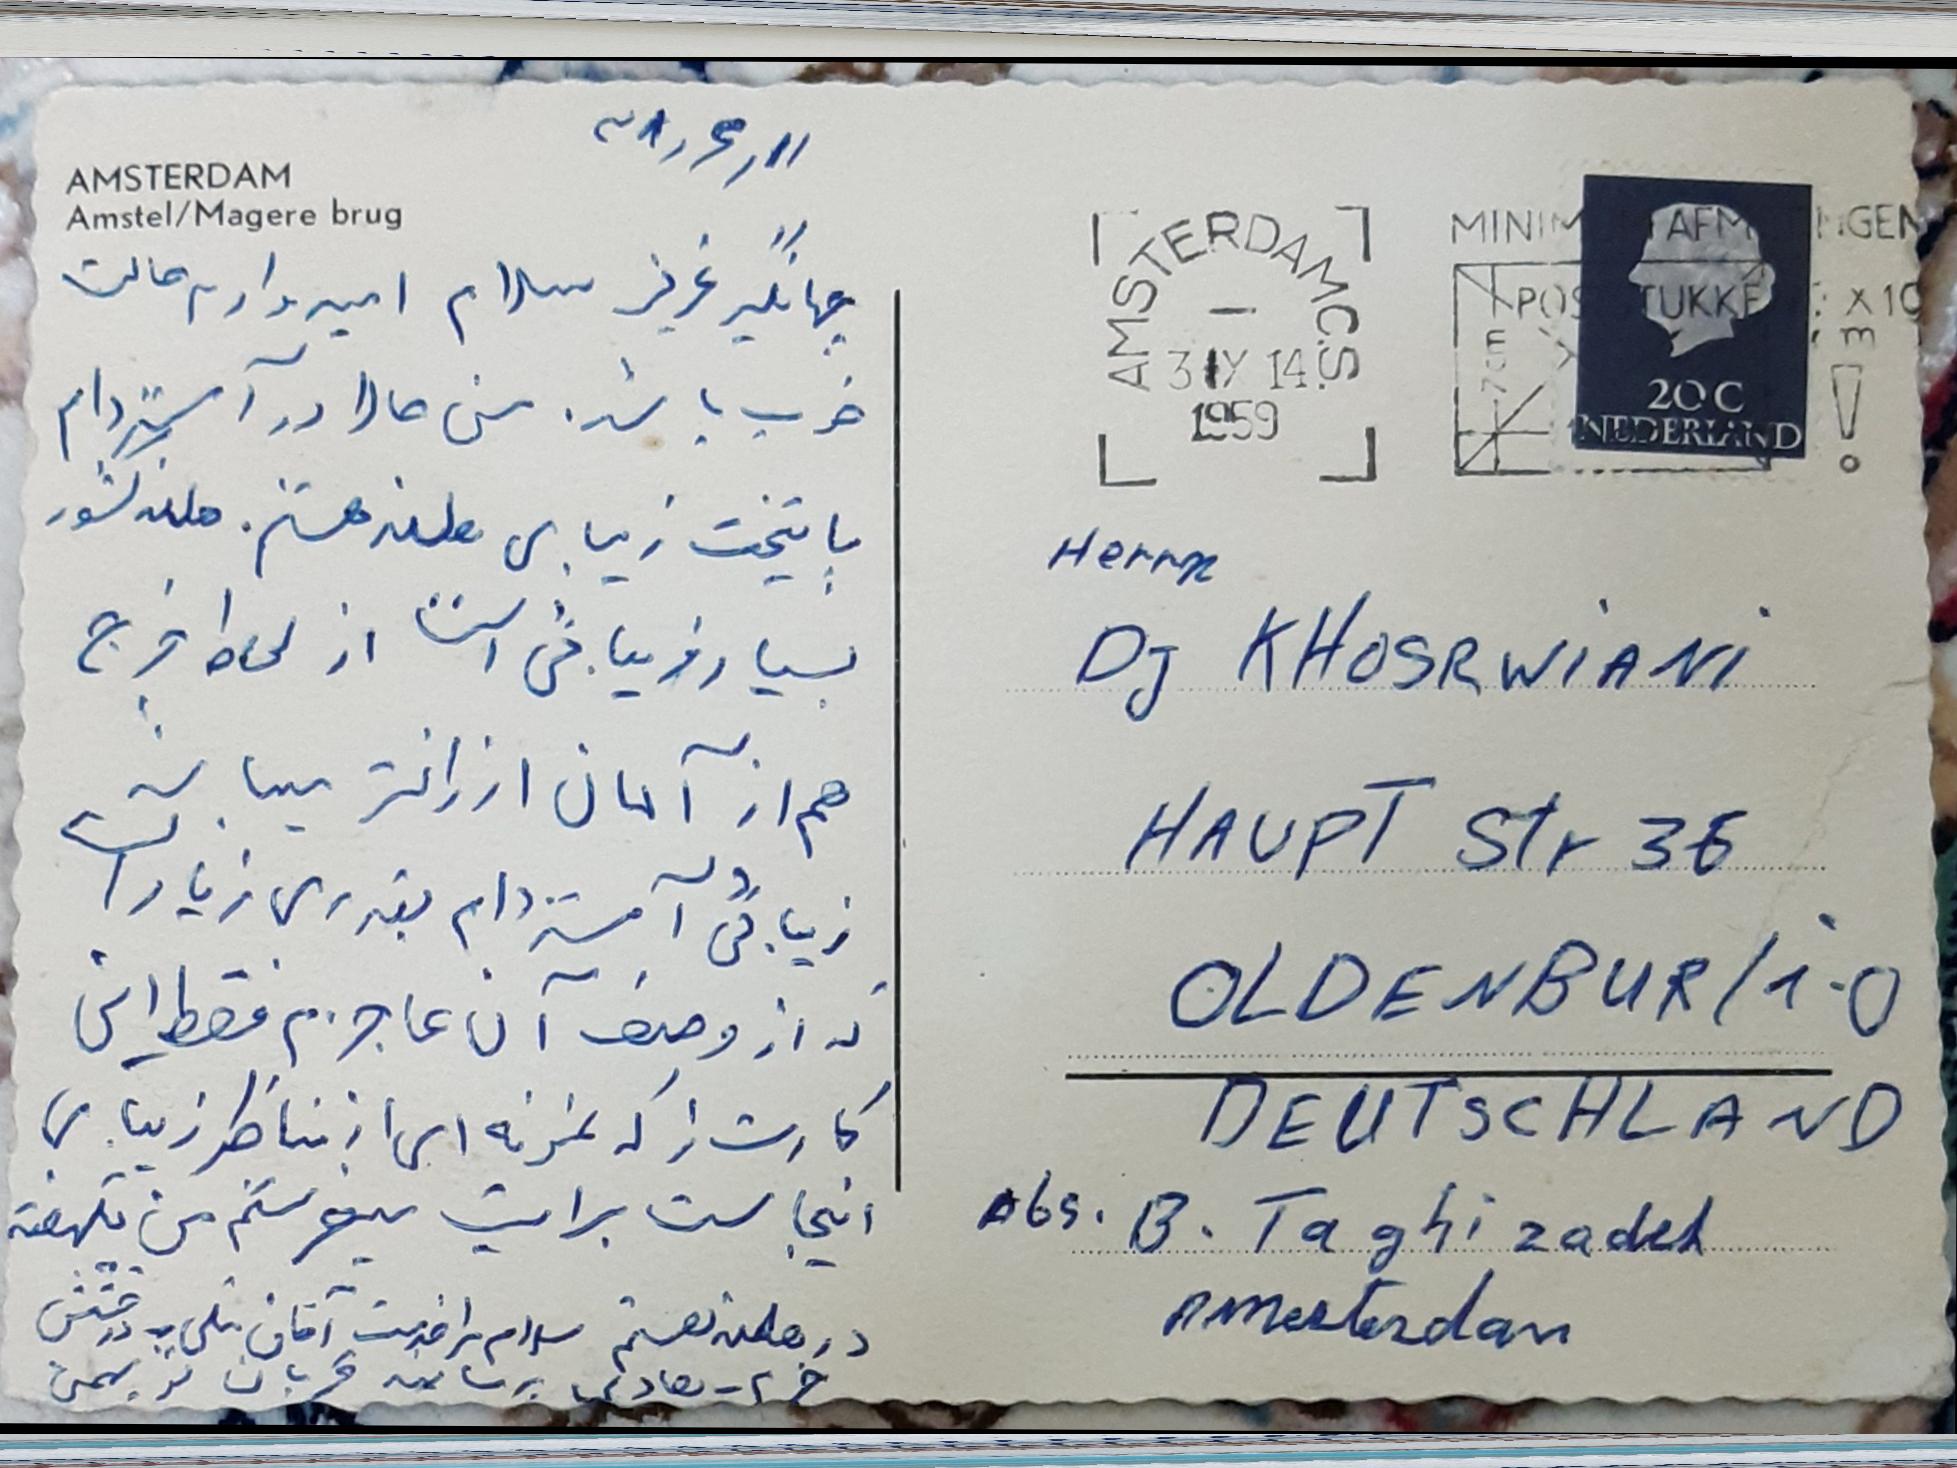 ۱۱ر۶ر۳۸
AMSTERDAM
Amstel/Magere brug
جهانگیر عزیز سلام امیدوارم حالت
خوب باشد. من حالا در آمستردام
پایتخت زیبای هلند هستم. هلند کشور
بسیار زیبائی است از لحاظ خرج
هم از آلمان ارزانتر میباشد
زیبائی آمستردام بقدری زیاد است
که از وصف آن عاجزم فقط این
کارت را که نمونه ای از مناظر زیبای
اینجا ست برایت میفرستم من یکهفته
در هلند هستم سلام مرا خدمت آقای
برسانید قربان تو بهمن
AMSTERDAM C.S.
3 IX 14
1959
MINIM AFM NGEN
POS TUKKE X 10
m
20 C
NEDERLAND
Herrn
Dj KHOSRWiANi
HAUPT Str 36
OLDENBUR/i.O
DEUTSCHLAND
Abs. B. Taghizadeh
Amesterdam